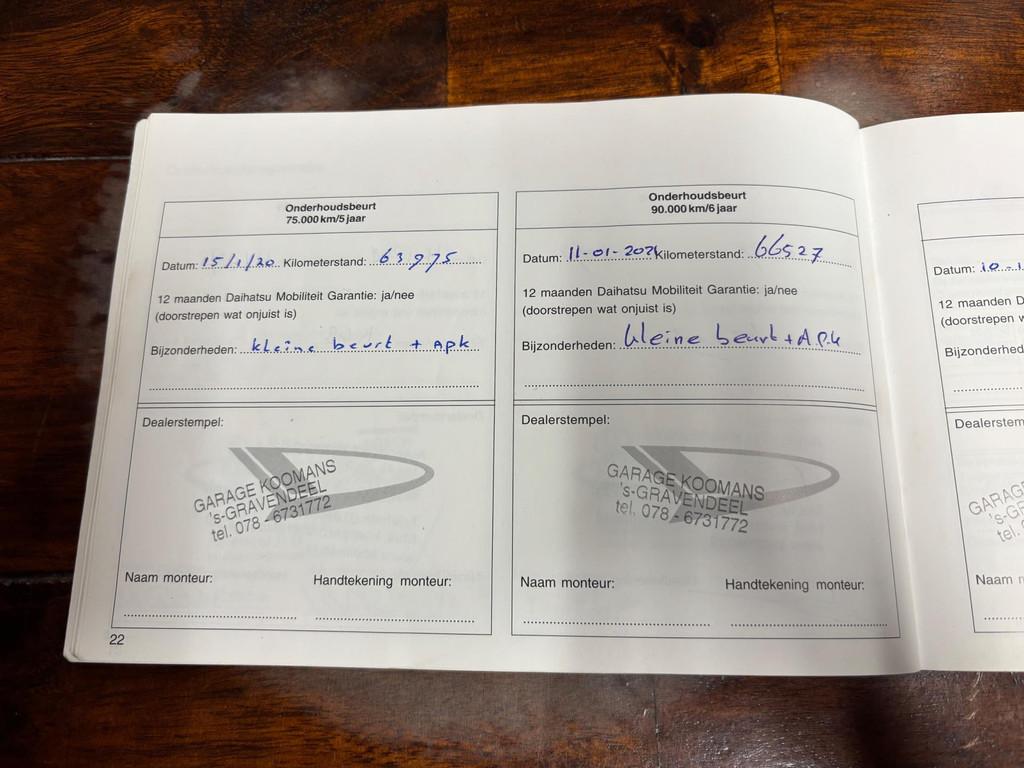 Onderhoudsbeurt
75.000 km/5 jaar
Datum: 15/1/20 Kilometerstand: 63975
12 maanden Daihatsu Mobiliteit Garantie: ja/nee
(doorstrepen wat onjuist is)
Bijzonderheden: kleine beurt + Apk
Dealerstempel:
GARAGE KOOMANS
's-GRAVENDEEL
tel. 078 - 6731772
Naam monteur: Handtekening monteur:
22
Onderhoudsbeurt
90.000 km/6 jaar
Datum: 11-01-2021 Kilometerstand: 66527
12 maanden Daihatsu Mobiliteit Garantie: ja/nee
(doorstrepen wat onjuist is)
Bijzonderheden: kleine beurt + APK
Dealerstempel:
GARAGE KOOMANS
's-GRAVENDEEL
tel. 078 - 6731772
Naam monteur: Handtekening monteur:
Datum: 10-1
12 maanden D
(doorstrepen
Bijzonderhed
Dealerstem
GARAG
's-G
tel.
Naam